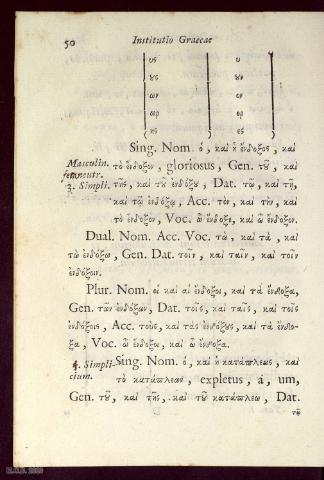 50 Institutio Graecae
υς υ
ους ον
ων εν
ωρ ορ
ης ες
Sing. Nom. ὁ, καὶ ἡ ἔνδοξος, καὶ
Masculin. τὸ ἔνδοξον, gloriosus, Gen. τοῦ, καὶ
fem neutr.
3. Simpli. τῆς, καὶ τοῦ ἐνδόξου, Dat. τῷ, καὶ τῇ,
καὶ τῷ ἐνδόξῳ, Acc. τὸν, καὶ τὴν, καὶ
τὸ ἔνδοξον, Voc. ὦ ἔνδοξε, καὶ ὦ ἔνδοξον.
Dual. Nom. Acc. Voc. τὼ, καὶ τὰ, καὶ
τὼ ἐνδόξω, Gen. Dat. τοῖν, καὶ ταῖν, καὶ τοῖν
ἐνδόξοιν.
Plur. Nom. οἱ καὶ αἱ ἔνδοξοι, καὶ τὰ ἔνδοξα,
Gen. τῶν ἐνδόξων, Dat. τοῖς, καὶ ταῖς, καὶ τοῖς
ἐνδόξοις, Acc. τοὺς, καὶ τὰς ἐνδόξους, καὶ τὰ ἔνδο-
ξα, Voc. ὦ ἔνδοξοι, καὶ ὦ ἔνδοξα.
4. Simpli- Sing. Nom. ὁ, καὶ ἡ κατάπλεως, καὶ
cium. τὸ κατάπλεων, expletus, a, um,
Gen. τοῦ, καὶ τῆς, καὶ τοῦ κατάπλεω, Dat.
τῷ